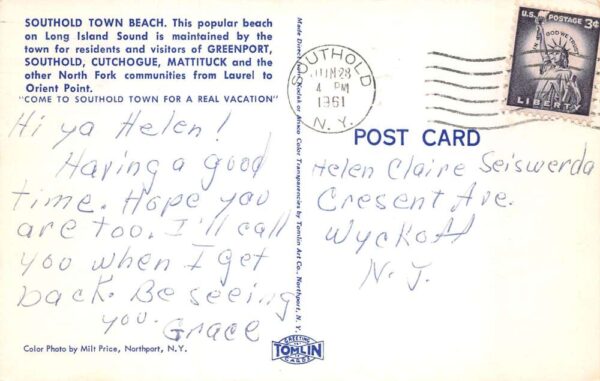 SOUTHOLD TOWN BEACH. This popular beach
on Long Island Sound is maintained by the
town for residents and visitors of GREENPORT,
SOUTHOLD, CUTCHOGUE, MATTITUCK and the
other North Fork communities from Laurel to
Orient Point.
"COME TO SOUTHOLD TOWN FOR A REAL VACATION"
Hi ya Helen!
Having a good
time. Hope you
are too. I'll call
you when I get
back. Be seeing
you. Grace
Color Photo by Milt Price, Northport, N.Y.
Made Direct from Kodak or Ansco Color Transparencies by Tomlin Art Co., Northport, N. Y.
SOUTHOLD
JUN 28
4 PM
1961
N.Y.
U.S. POSTAGE 3¢
IN GOD WE TRUST
LIBERTY
POST CARD
Helen Claire Seiswerda
Cresent Ave.
Wyckoff
N. J.
GREETING
TOMLIN
CARDS